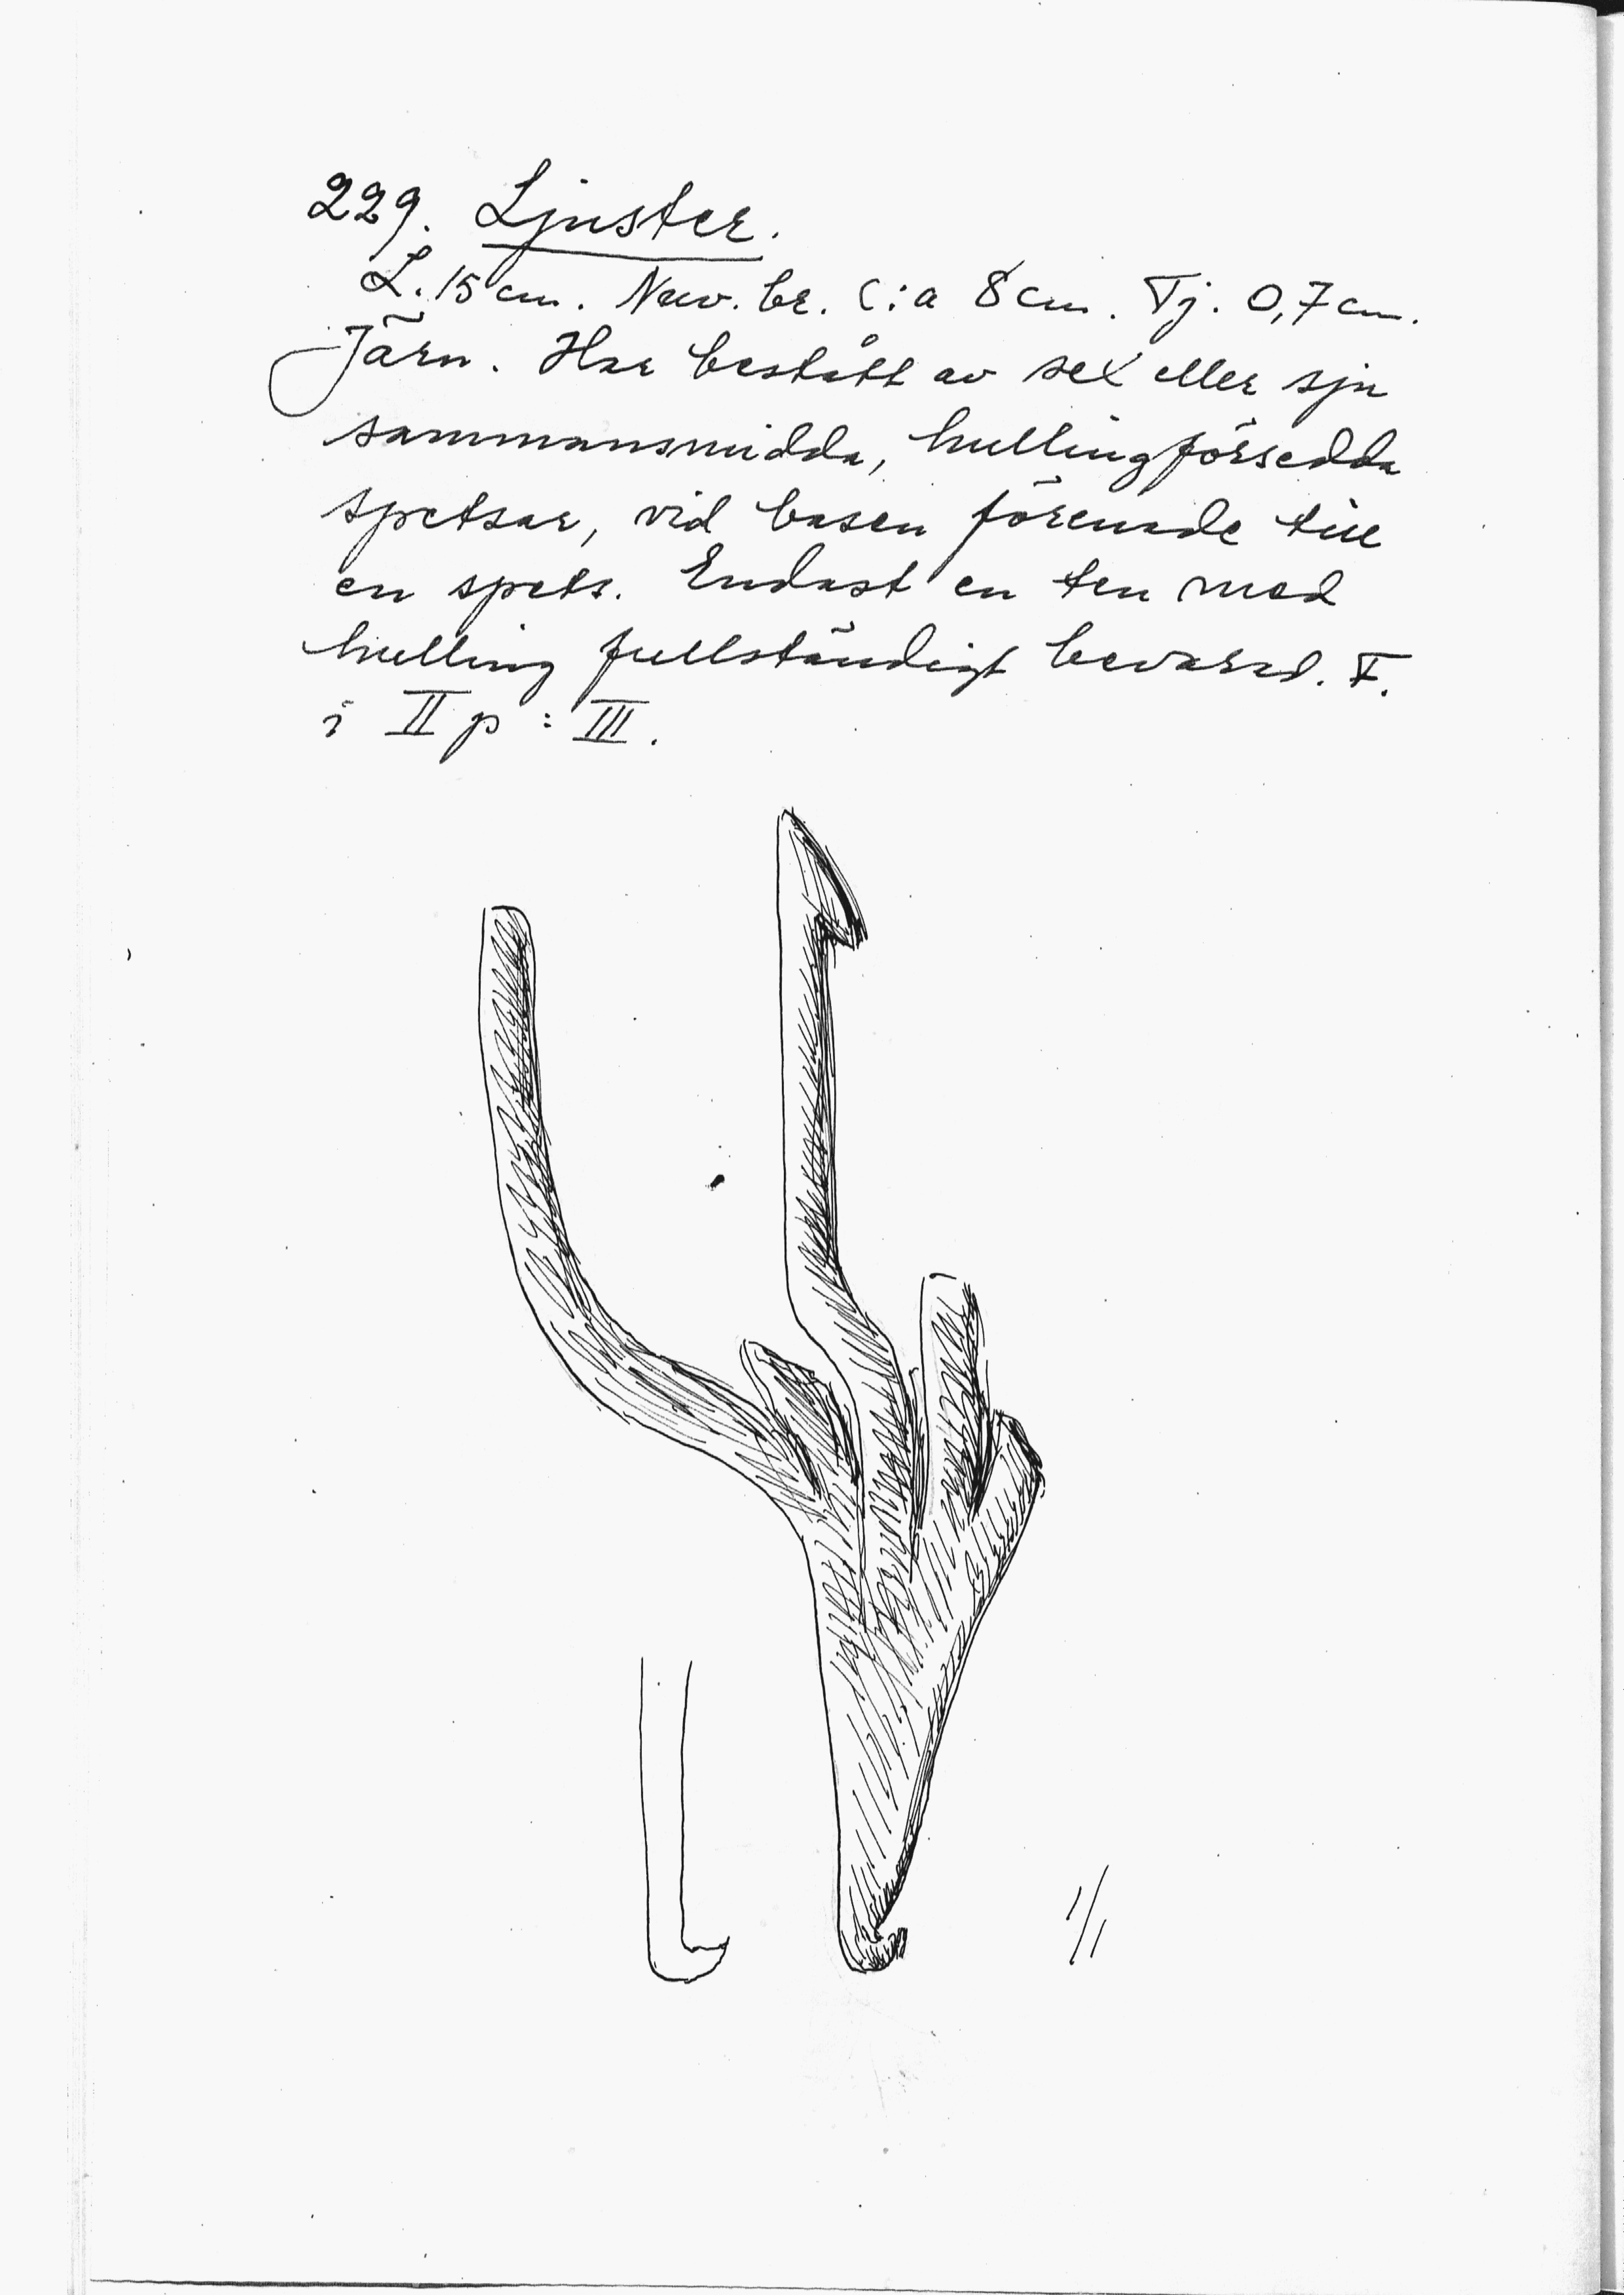 229. Ljuster.
L. 15 cm. Nuv. br. c:a 8 cm. Tj. 0,7 cm.
Järn. Har bestått av sex eller sju
sammansmidda, hullingförsedda
spetsar, vid basen förenade till
en spets. Endast en ten med
hulling fullständigt bevarad. F.
i II p : III.
1/1